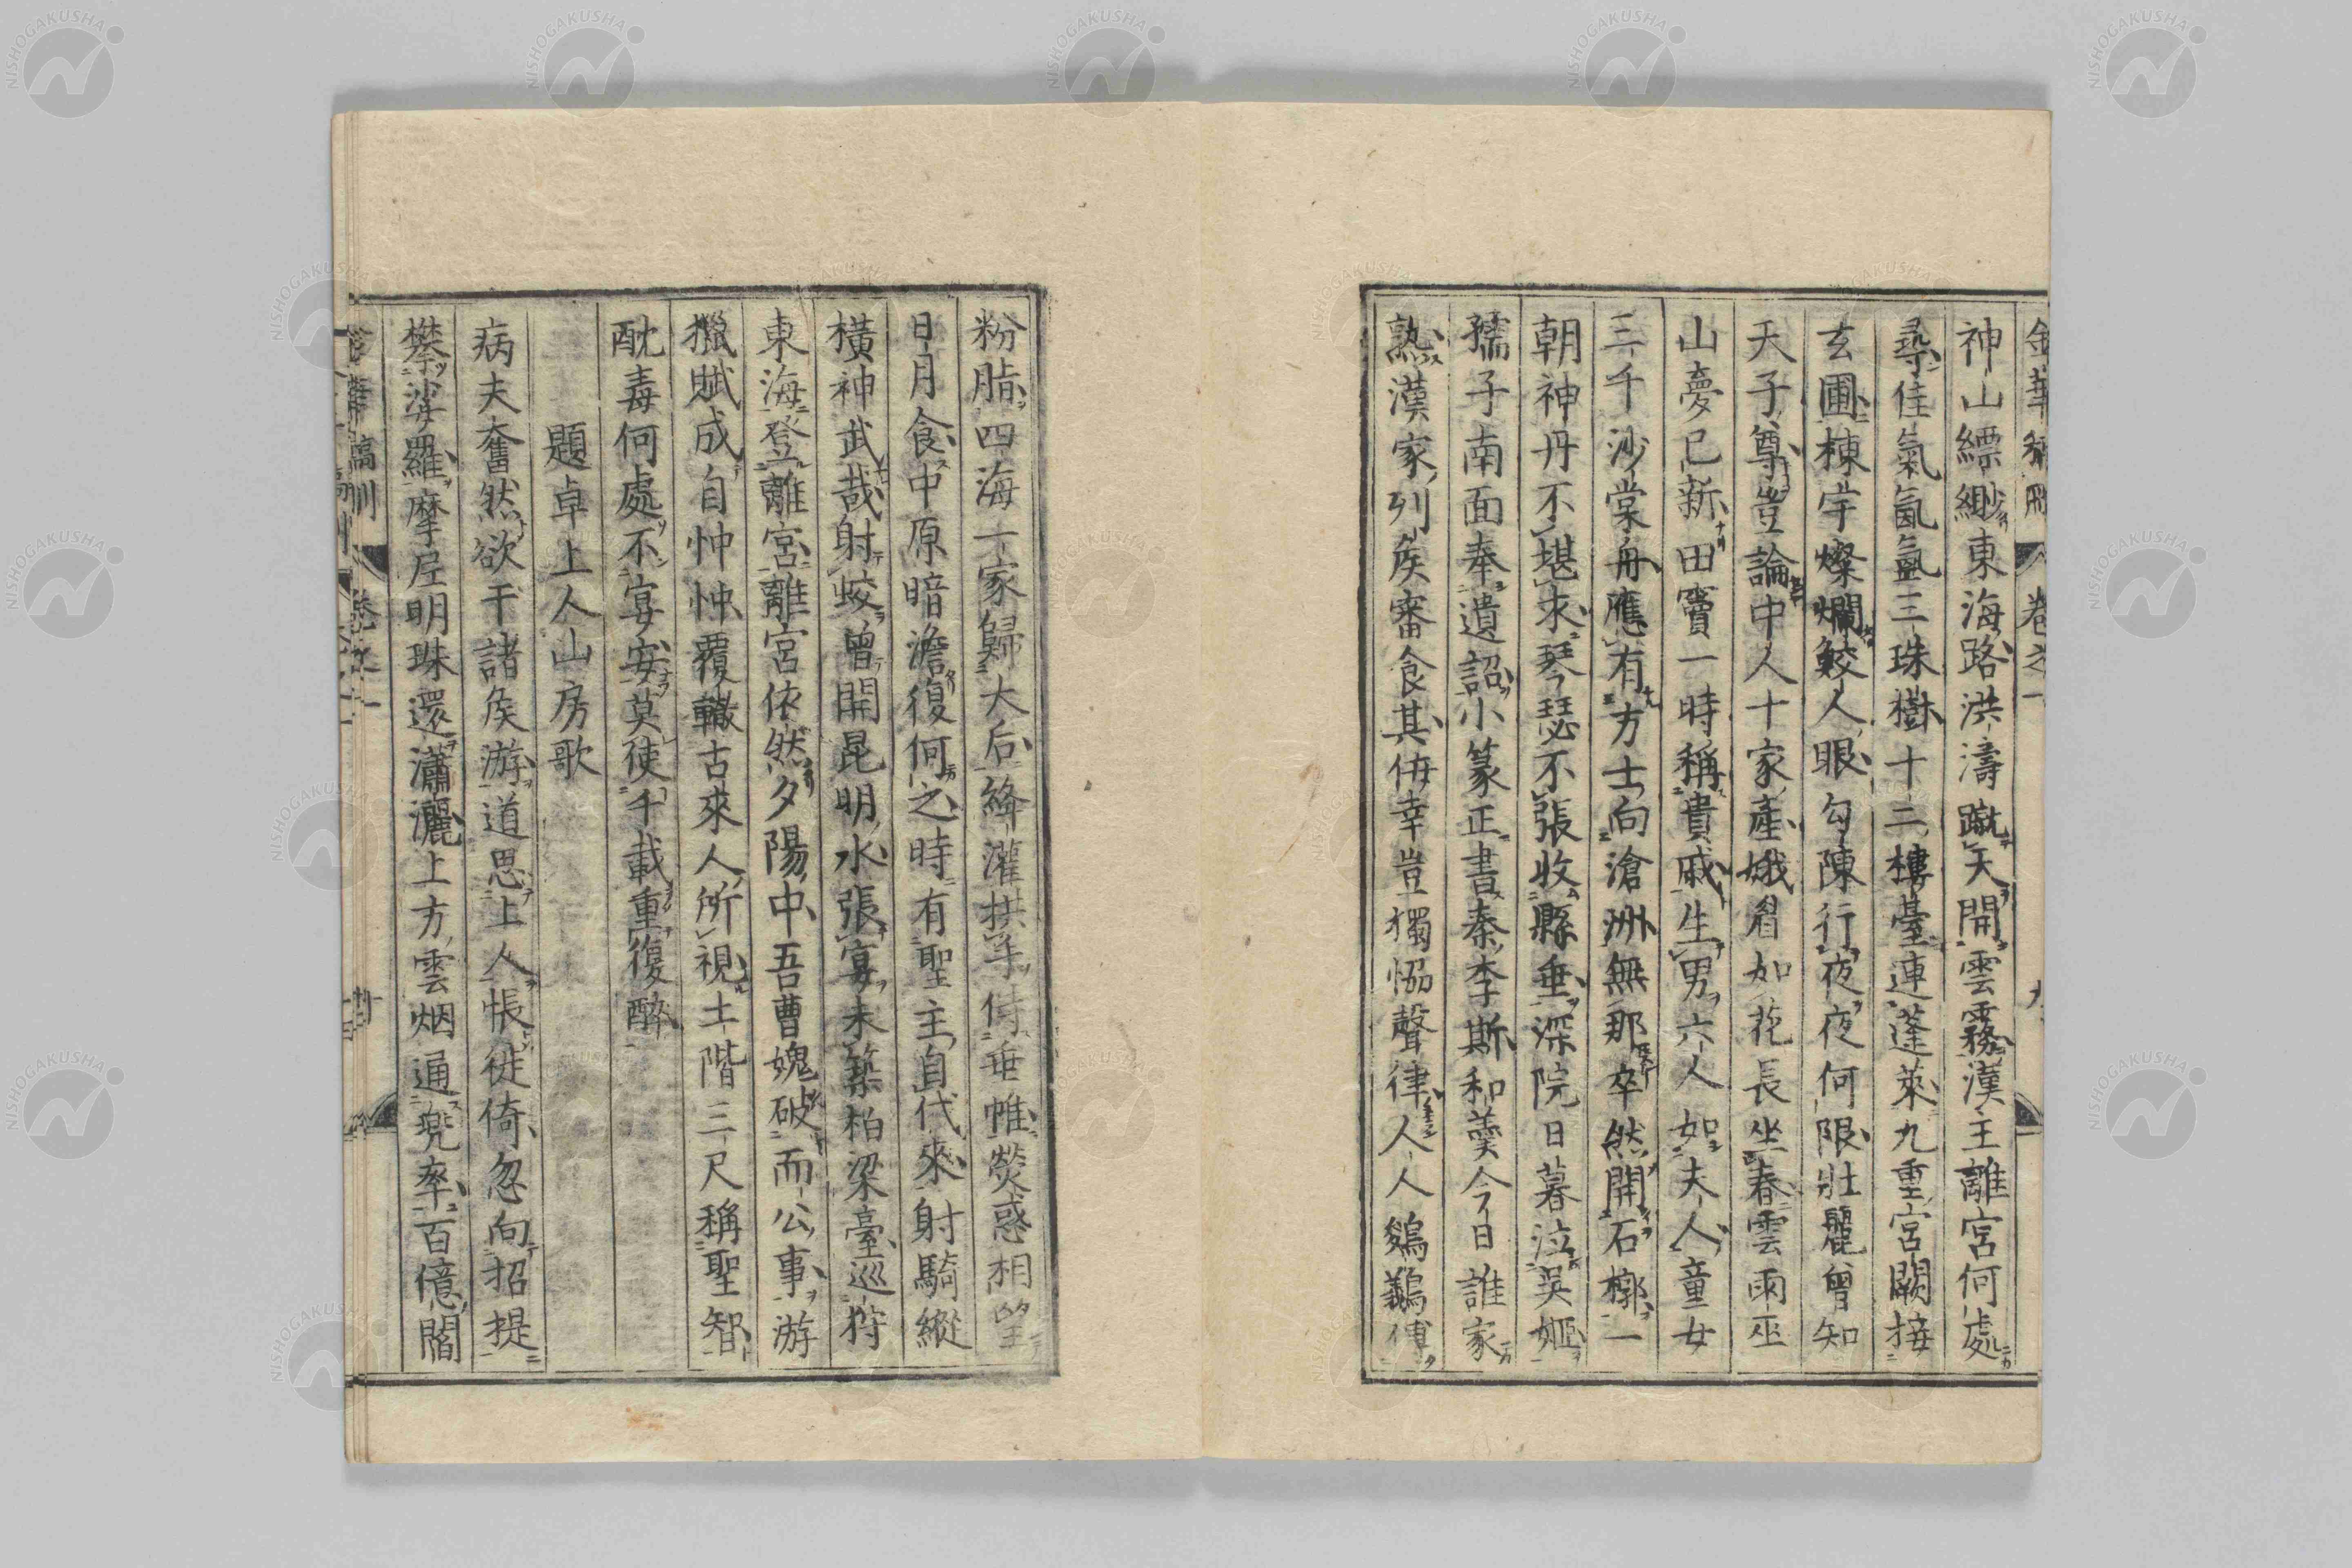 金華稿刪 卷之一 九
神山縹緲東海路洪濤蹴天開雲霧漢王離宮何處
尋佳氣氤氳三珠樹十二樓臺連蓬萊九重宮闕接
玄圃棟宇燦爛鮫人眼勾陳行夜夜何限壯麗曾知
天子尊豈論中人十家產娥眉如花長坐春雲雨巫
山夢已新田竇一時稱貴戚生男六人如夫人童女
三千沙棠舟應有方士向滄洲無那卒然開石槨一
朝神丹不堪求琴瑟不張收縣垂深院日暮泣吳姬
孺子南面奉遺詔小篆正書秦李斯和羹今日誰家
熟漢家列侯審食其侮幸豈獨協聲律人人鵕鸃傅
粉脂四海一家歸大后絳灌拱手侍垂帷熒惑相望
日月食中原暗澹復何之時有聖主自代來射騎縱
橫神武哉射蛟曾開昆明水張宴未築柏梁臺巡狩
東海登離宮離宮依然夕陽中吾曹媿破而公事游
獵賦成自忡忡覆轍古來人所視土階三尺稱聖智
酖毒何處不宴安莫使千載重復醉
題卓上人山房歌
病夫奮然欲干諸侯游道思上人悵徙倚忽向招提
攀娑羅摩尼明珠還瀟灑上方雲烟通兜率百億閻